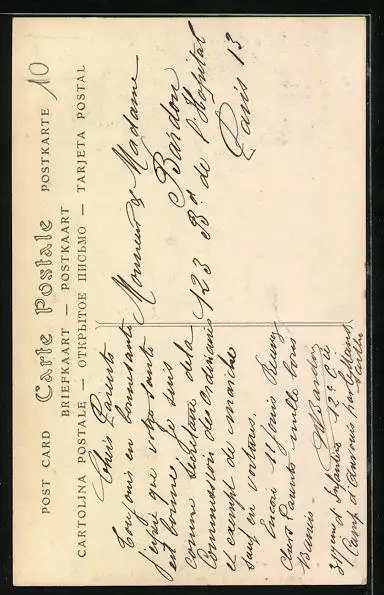 10
POST CARD Carte Postale POSTKARTE
BRIEFKAART — POSTKAART
CARTOLINA POSTALE — ОТКРЫТОЕ ПИСЬМО — TARJETA POSTAL
Chers Parents
Toujours en bonne santé
j'espère que votre santé
est bonne. Je suis
comme secrétaire de la
Commission des Ordinaires
et exempt de marche
sauf en voiture.
Encore 11 jours
Chers Parents mille bons
Baisers.
Bardon
d'Infanterie 12e Cie
Camp d'
Monsieur & Madame
Bardon
123 Bd de l'Hopital
Paris 13